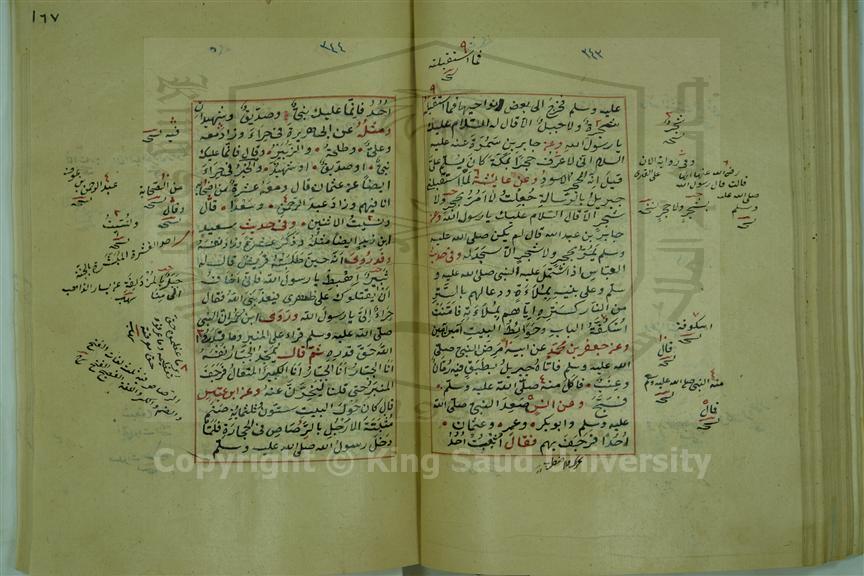 ١٦٧
٣٤٣
فما استقبلته
عليه وسلم فخرج الى بعض نواحيها فما استقبله
شجرة ولا جبل الا قال له السلام عليك
يا رسول الله وعن جابر بن سمرة عنه عليه
السلام انى لاعرف حجرا بمكة كان يسلم على
قيل انه الحجر الاسود وعن عايشة لما استقبلنى
جبريل بالرسالة جعلت لا امر بحجر ولا
شجر الا قال السلام عليك يا رسول الله وعن
جابر بن عبد الله قال لم يكن صلى الله عليه
وسلم يمر بحجر ولا شجر الا سجد له وفى حديث
العباس اذ اشتمل عليه النبى صلى الله عليه و
سلم وعلى بنيه بملاءة ودعا لهم بالستر
من النار كستره اياهم بملاءته فامنت
اسكفة الباب وحوائط البيت امين امين
وعن جعفر بن محمد عن ابيه مرض النبى صلى
الله عليه وسلم فاتاه جبريل بطبق فيه رمان
وعنب فاكل منه صلى الله عليه وسلم
فسبح وعن انس صعد النبى صلى الله
عليه وسلم وابو بكر وعمر وعثمان
احدا فرجف بهم فقال اثبت احد
شجرة
وفى رواية الان
رضى الله عنها انها
قالت قال رسول الله
صلى الله عليه
وسلم
بشجر ولا حجر
اسكوفة
قال
منه النبى صلى الله عليه وسلم
قال
٣٤٤
احد فانما عليك نبى وصديق وشهيدان
ومثله عن ابى هريرة فى حراء وزاد معه
وعلى وطلحة والزبير وقال فانما عليك
نبى او صديق او شهيد والخبر فى حراء
ايضا عن عثمان قال ومعه عشرة من اصحابه
انا فيهم وزاد عبد الرحمن وسعدا قال
ونسيت الاثنين وفى حديث سعيد
ابن زيد ايضا مثله وذكر عشرة وزاد نفسه
وقد روى انه حين طلبته قريش قال له
ثبير اهبط يا رسول الله فانى اخاف
ان يقتلوك على ظهرى فيعذبنى الله فقال
حراء الى يا رسول الله وروى ابن عمر ان النبى
صلى الله عليه وسلم قرأ على المنبر وما قدروا
الله حق قدره ثم قال يمجد الجبار نفسه
انا الجبار انا الجبار انا الكبير المتعال فرجف
المنبر حتى قلنا ليخرن عنه وعن ابن عباس
قال كان حول البيت ستون وثلثمائة صنم
مثبتة الارجل بالرصاص فى الحجارة فلما
دخل رسول الله صلى الله عليه وسلم
فيه
عبد الرحمن بن عوف
من الصحابة
وقال
ونسيت
Copyright © King Saud University